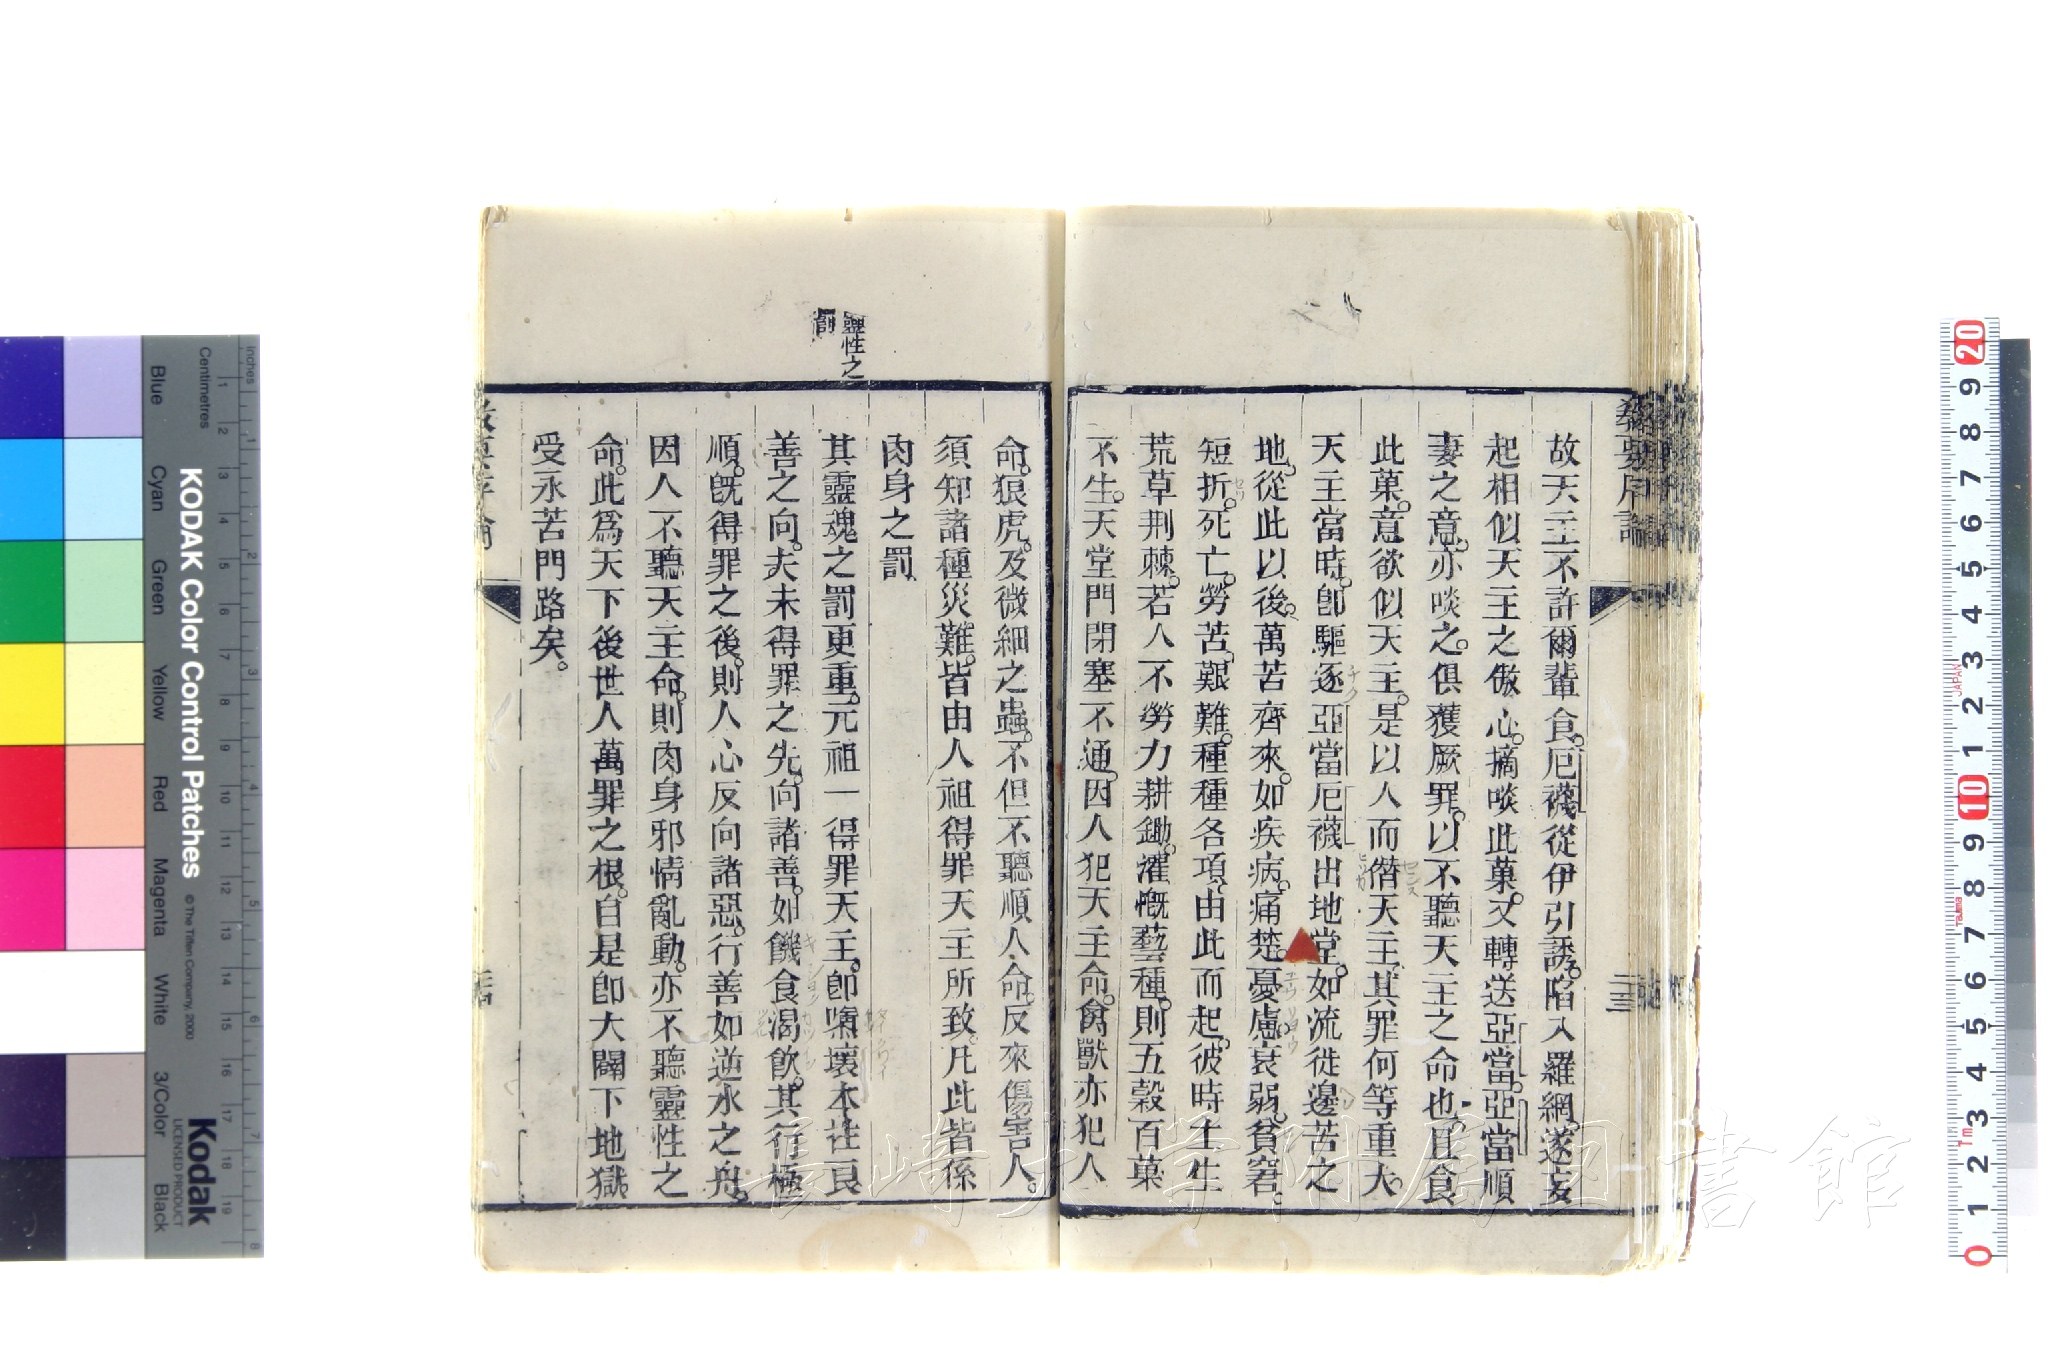 教要序論
故天主不許爾輩食。厄襪從伊引誘。陷入羅網。遂妄
起相似天主之傲心。摘啖此菓。又轉送亞當。亞當順
妻之意。亦啖之。俱獲厥罪。以不聽天主之命也。且食
此菓。意欲似天主。是以人而僭天主。其罪何等重大。
天主當時。卽驅逐亞當厄襪出地堂。如流徙邊苦之
地。從此以後。萬苦齊來。如疾病。痛楚。憂慮。衰弱。貧窘。
短折。死亡。勞苦。艱難。種種各項。由此而起。彼時土生
荒草荆棘。若人不勞力耕鋤。灌慨藝種。則五穀百菓
不生。天堂門閉塞不通。因人犯天主命。禽獸亦犯人
命。狼虎。及微細之蟲。不但不聽順人命。反來傷害人。
須知諸種災難。皆由人祖得罪天主所致。凡此皆係
肉身之罰
靈性之
罰
其靈魂之罰更重。元祖一得罪天主。卽壞本性良
善之向。夫未得罪之先。向諸善。如饑食渴飲。其行極
順。旣得罪之後。則人心反向諸惡。行善如逆水之舟。
因人不聽天主命。則肉身邪情亂動。亦不聽靈性之
命。此爲天下後世人萬罪之根。自是卽大闢下地獄。
受永苦門路矣。
教要序論
KODAK Color Control Patches
© The Tiffen Company, 2000
Kodak
LICENSED PRODUCT
Inches
Centimetres
Blue
Cyan
Green
Yellow
Red
Magenta
White
3/Color
Black
長崎大学附属図書館